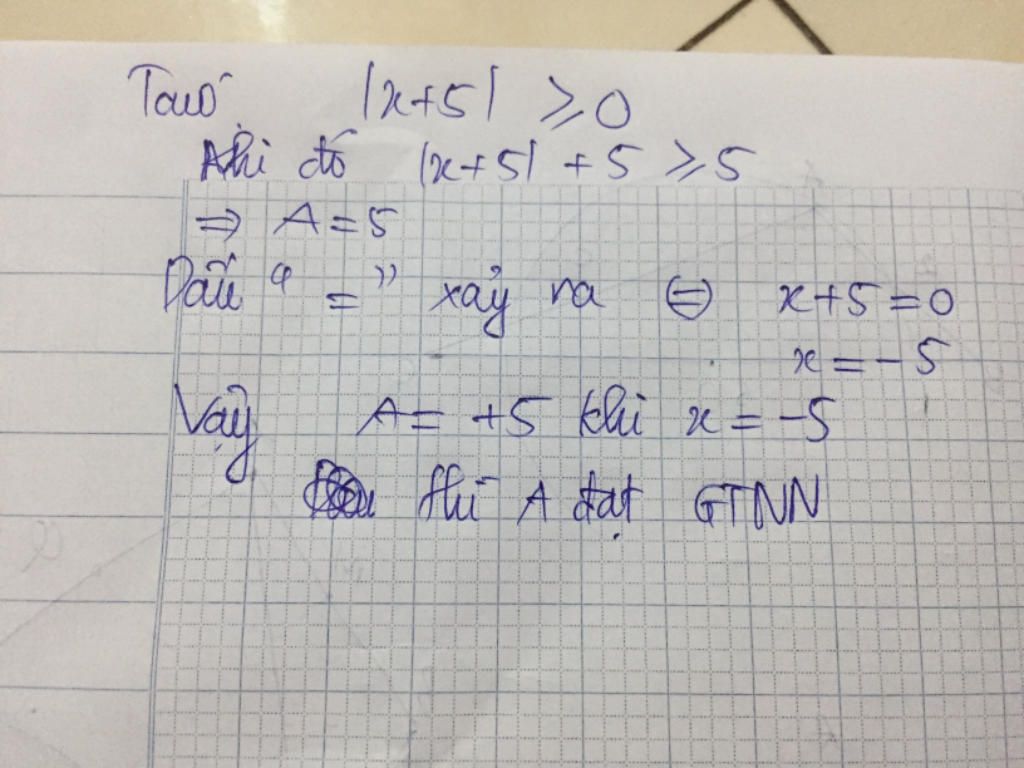 Ta có |x+5| ⩾ 0
Khi đó |x+5| + 5 ⩾ 5
⇒ A = 5
Dấu " = " xảy ra ⇔ x+5 = 0
x = -5
Vậy A = +5 khi x = -5
thì A đạt GTNN